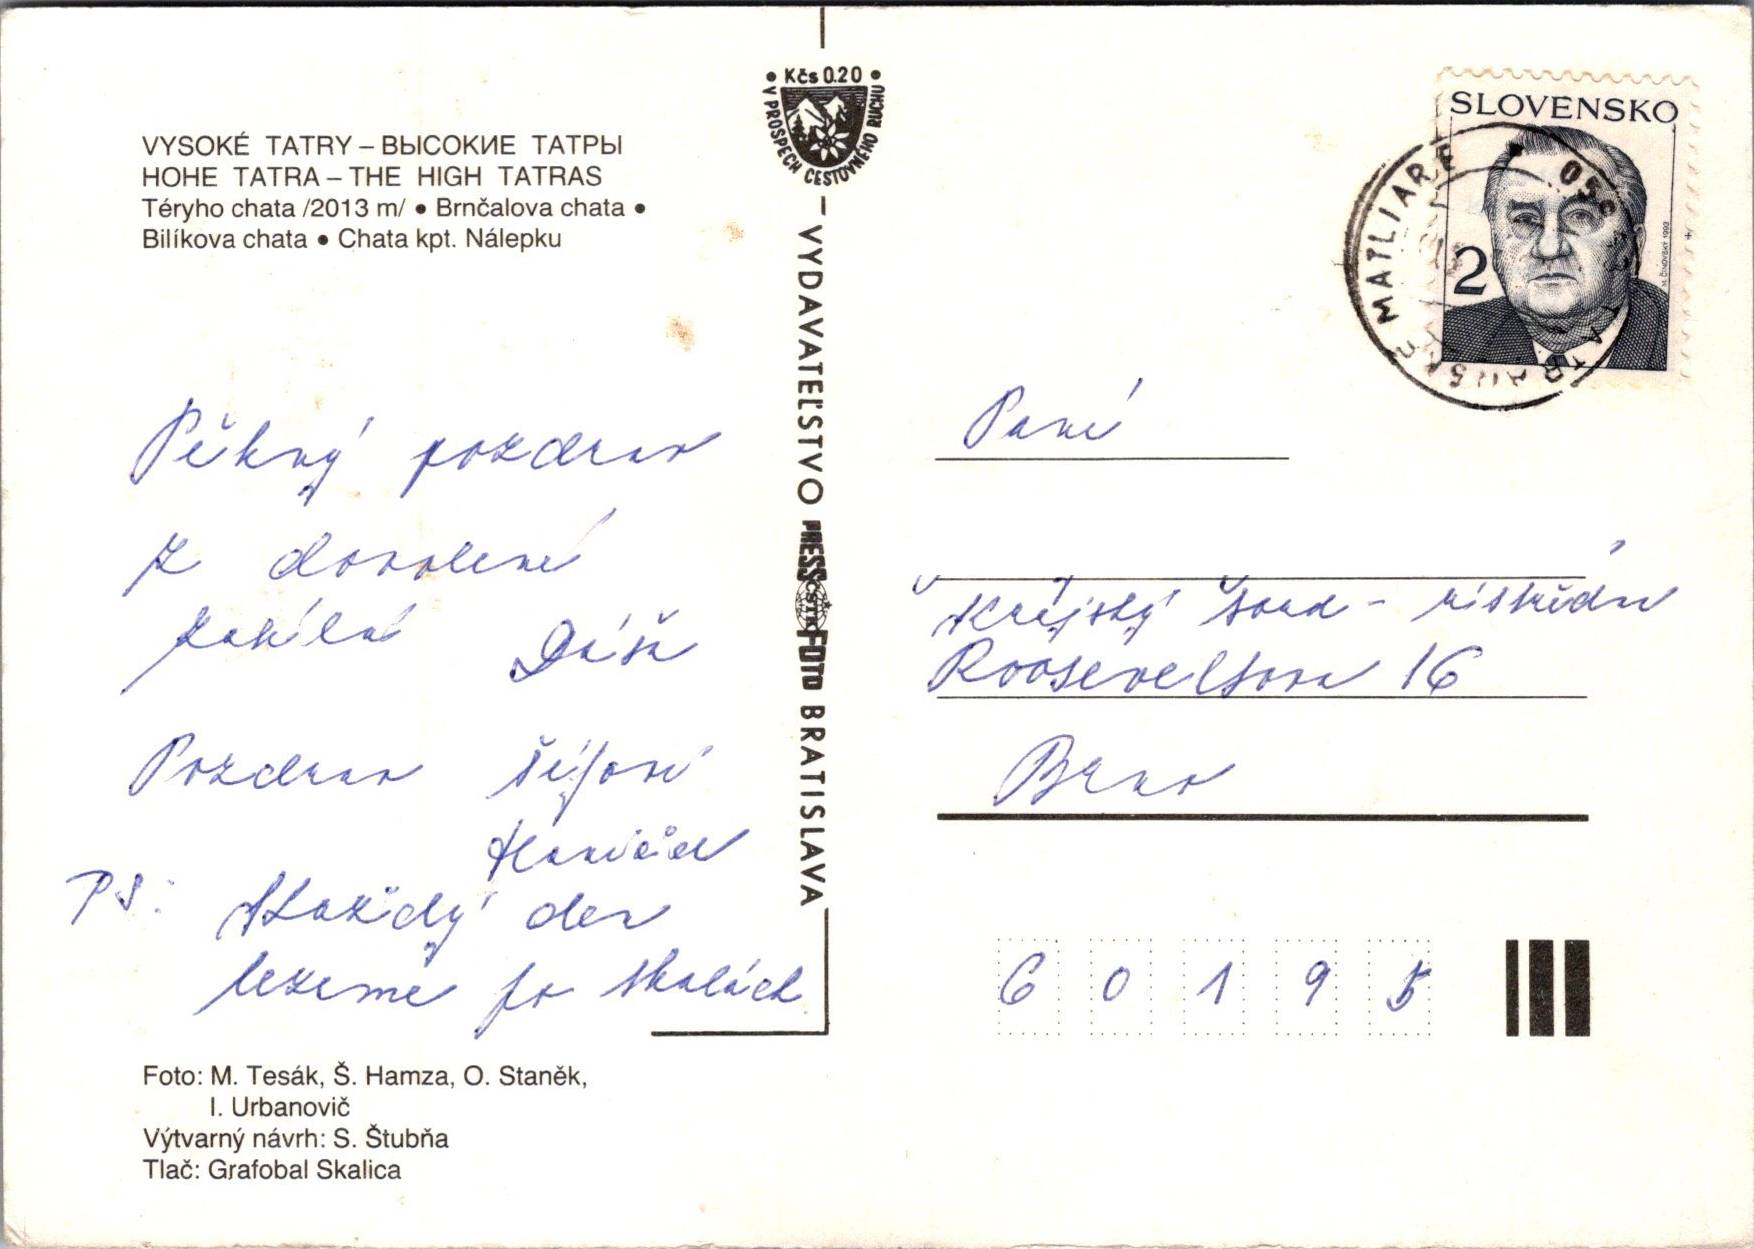 VYSOKÉ TATRY – ВЫСОКИЕ ТАТРЫ
HOHE TATRA – THE HIGH TATRAS
Téryho chata /2013 m/ • Brnčalova chata •
Bilíkova chata • Chata kpt. Nálepku
Pěkný pozdrav
z dovolené
zasílá Dáša
Pozdrav
PS: Každý den
lezeme po skalách
Foto: M. Tesák, Š. Hamza, O. Staněk,
I. Urbanovič
Výtvarný návrh: S. Štubňa
Tlač: Grafobal Skalica
• Kčs 0.20 •
V PROSPECH CESTOVNÉHO RUCHU
– VYDAVATEĽSTVO PRESSFOTO BRATISLAVA
ČSTK
SLOVENSKO
2
M. ČINOVSKÝ 1993
TATRANSKÉ MATLIARE
Paní
Krajský soud -
Rooseveltova 16
Brno
60195